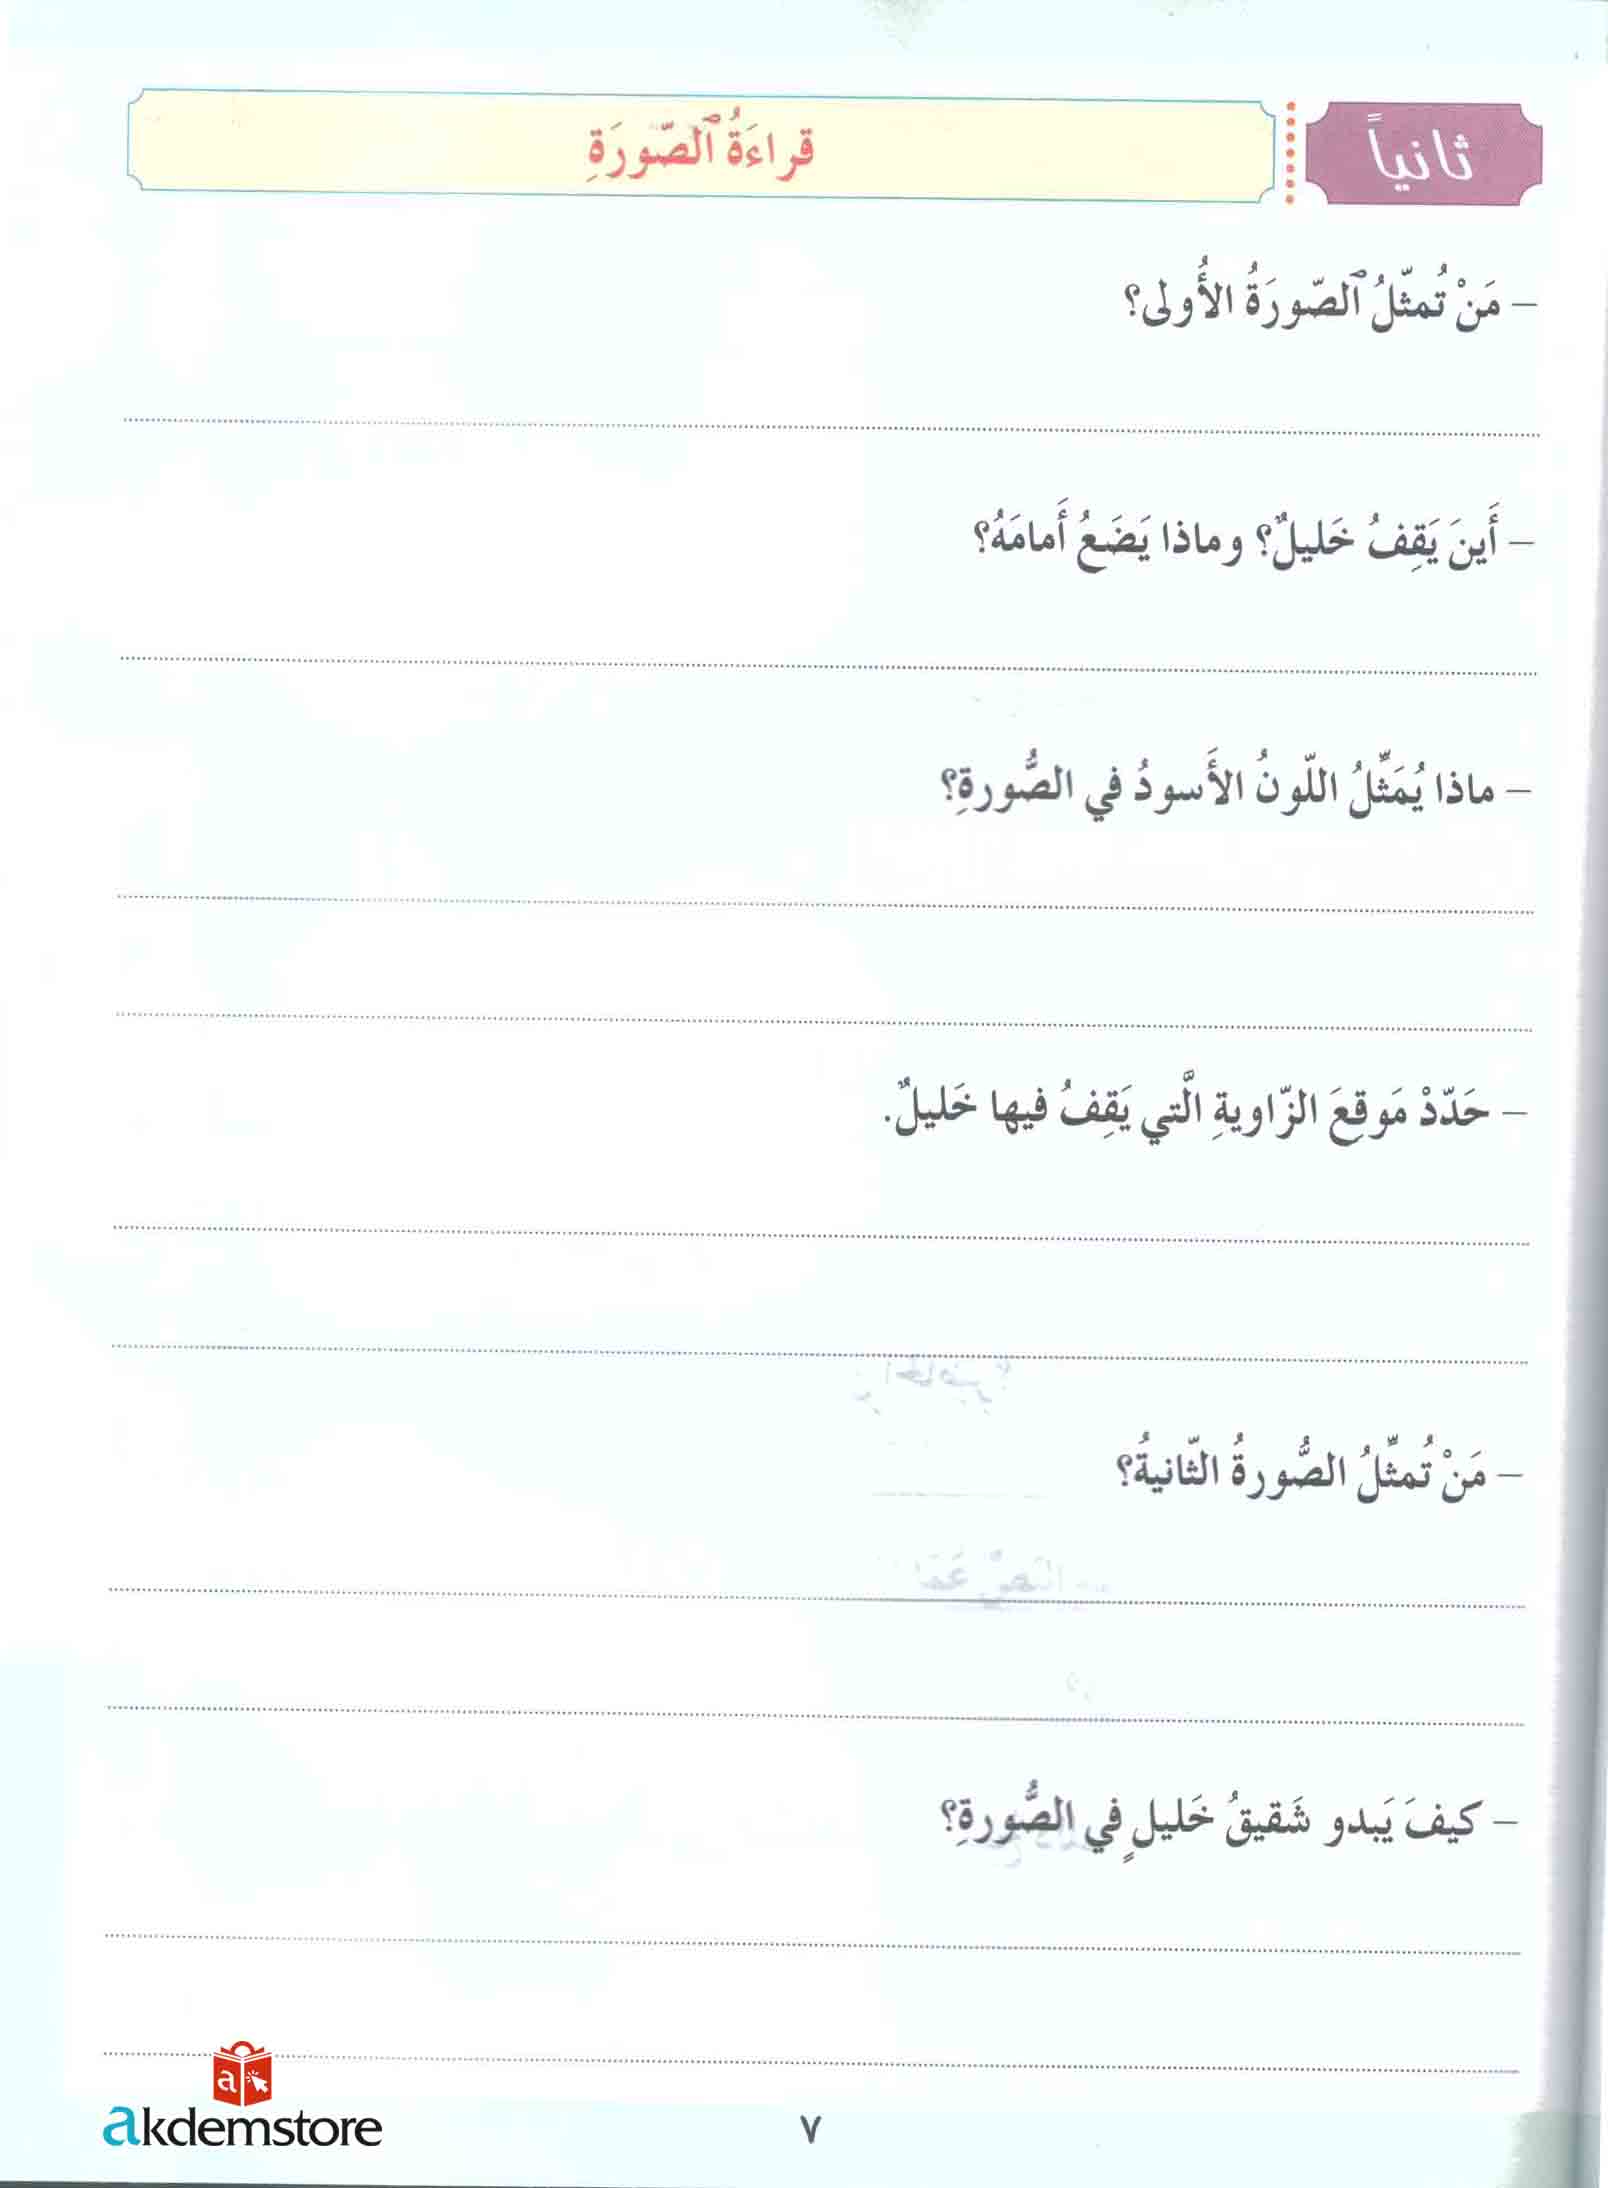 ثانياً
قراءَةُ ٱلصّورَةِ
– مَنْ تُمثّلُ ٱلصّورَةُ الأُولى؟
– أَينَ يَقِفُ خَليلٌ؟ وماذا يَضَعُ أَمامَهُ؟
– ماذا يُمَثِّلُ اللّونُ الأَسودُ في الصُّورةِ؟
– حَدّدْ مَوقِعَ الزّاويةِ الَّتي يَقِفُ فيها خَليلٌ.
– مَنْ تُمثِّلُ الصُّورةُ الثّانيةُ؟
– كيفَ يَبدو شَقيقُ خَليلٍ في الصُّورةِ؟
a
akdemstore
٧